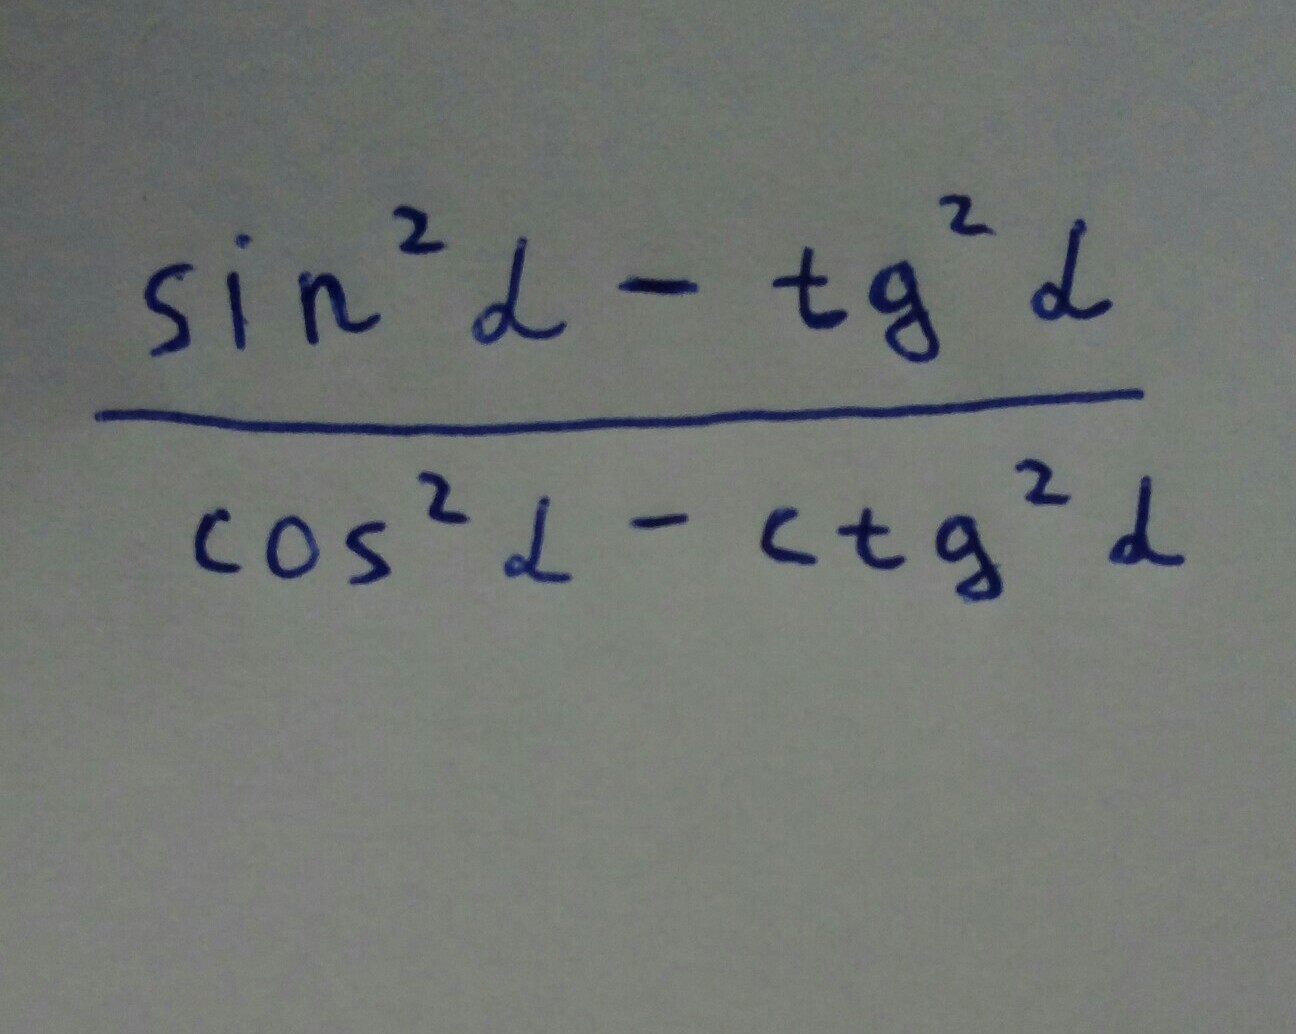 sin²α - tg²α
cos²α - ctg²α